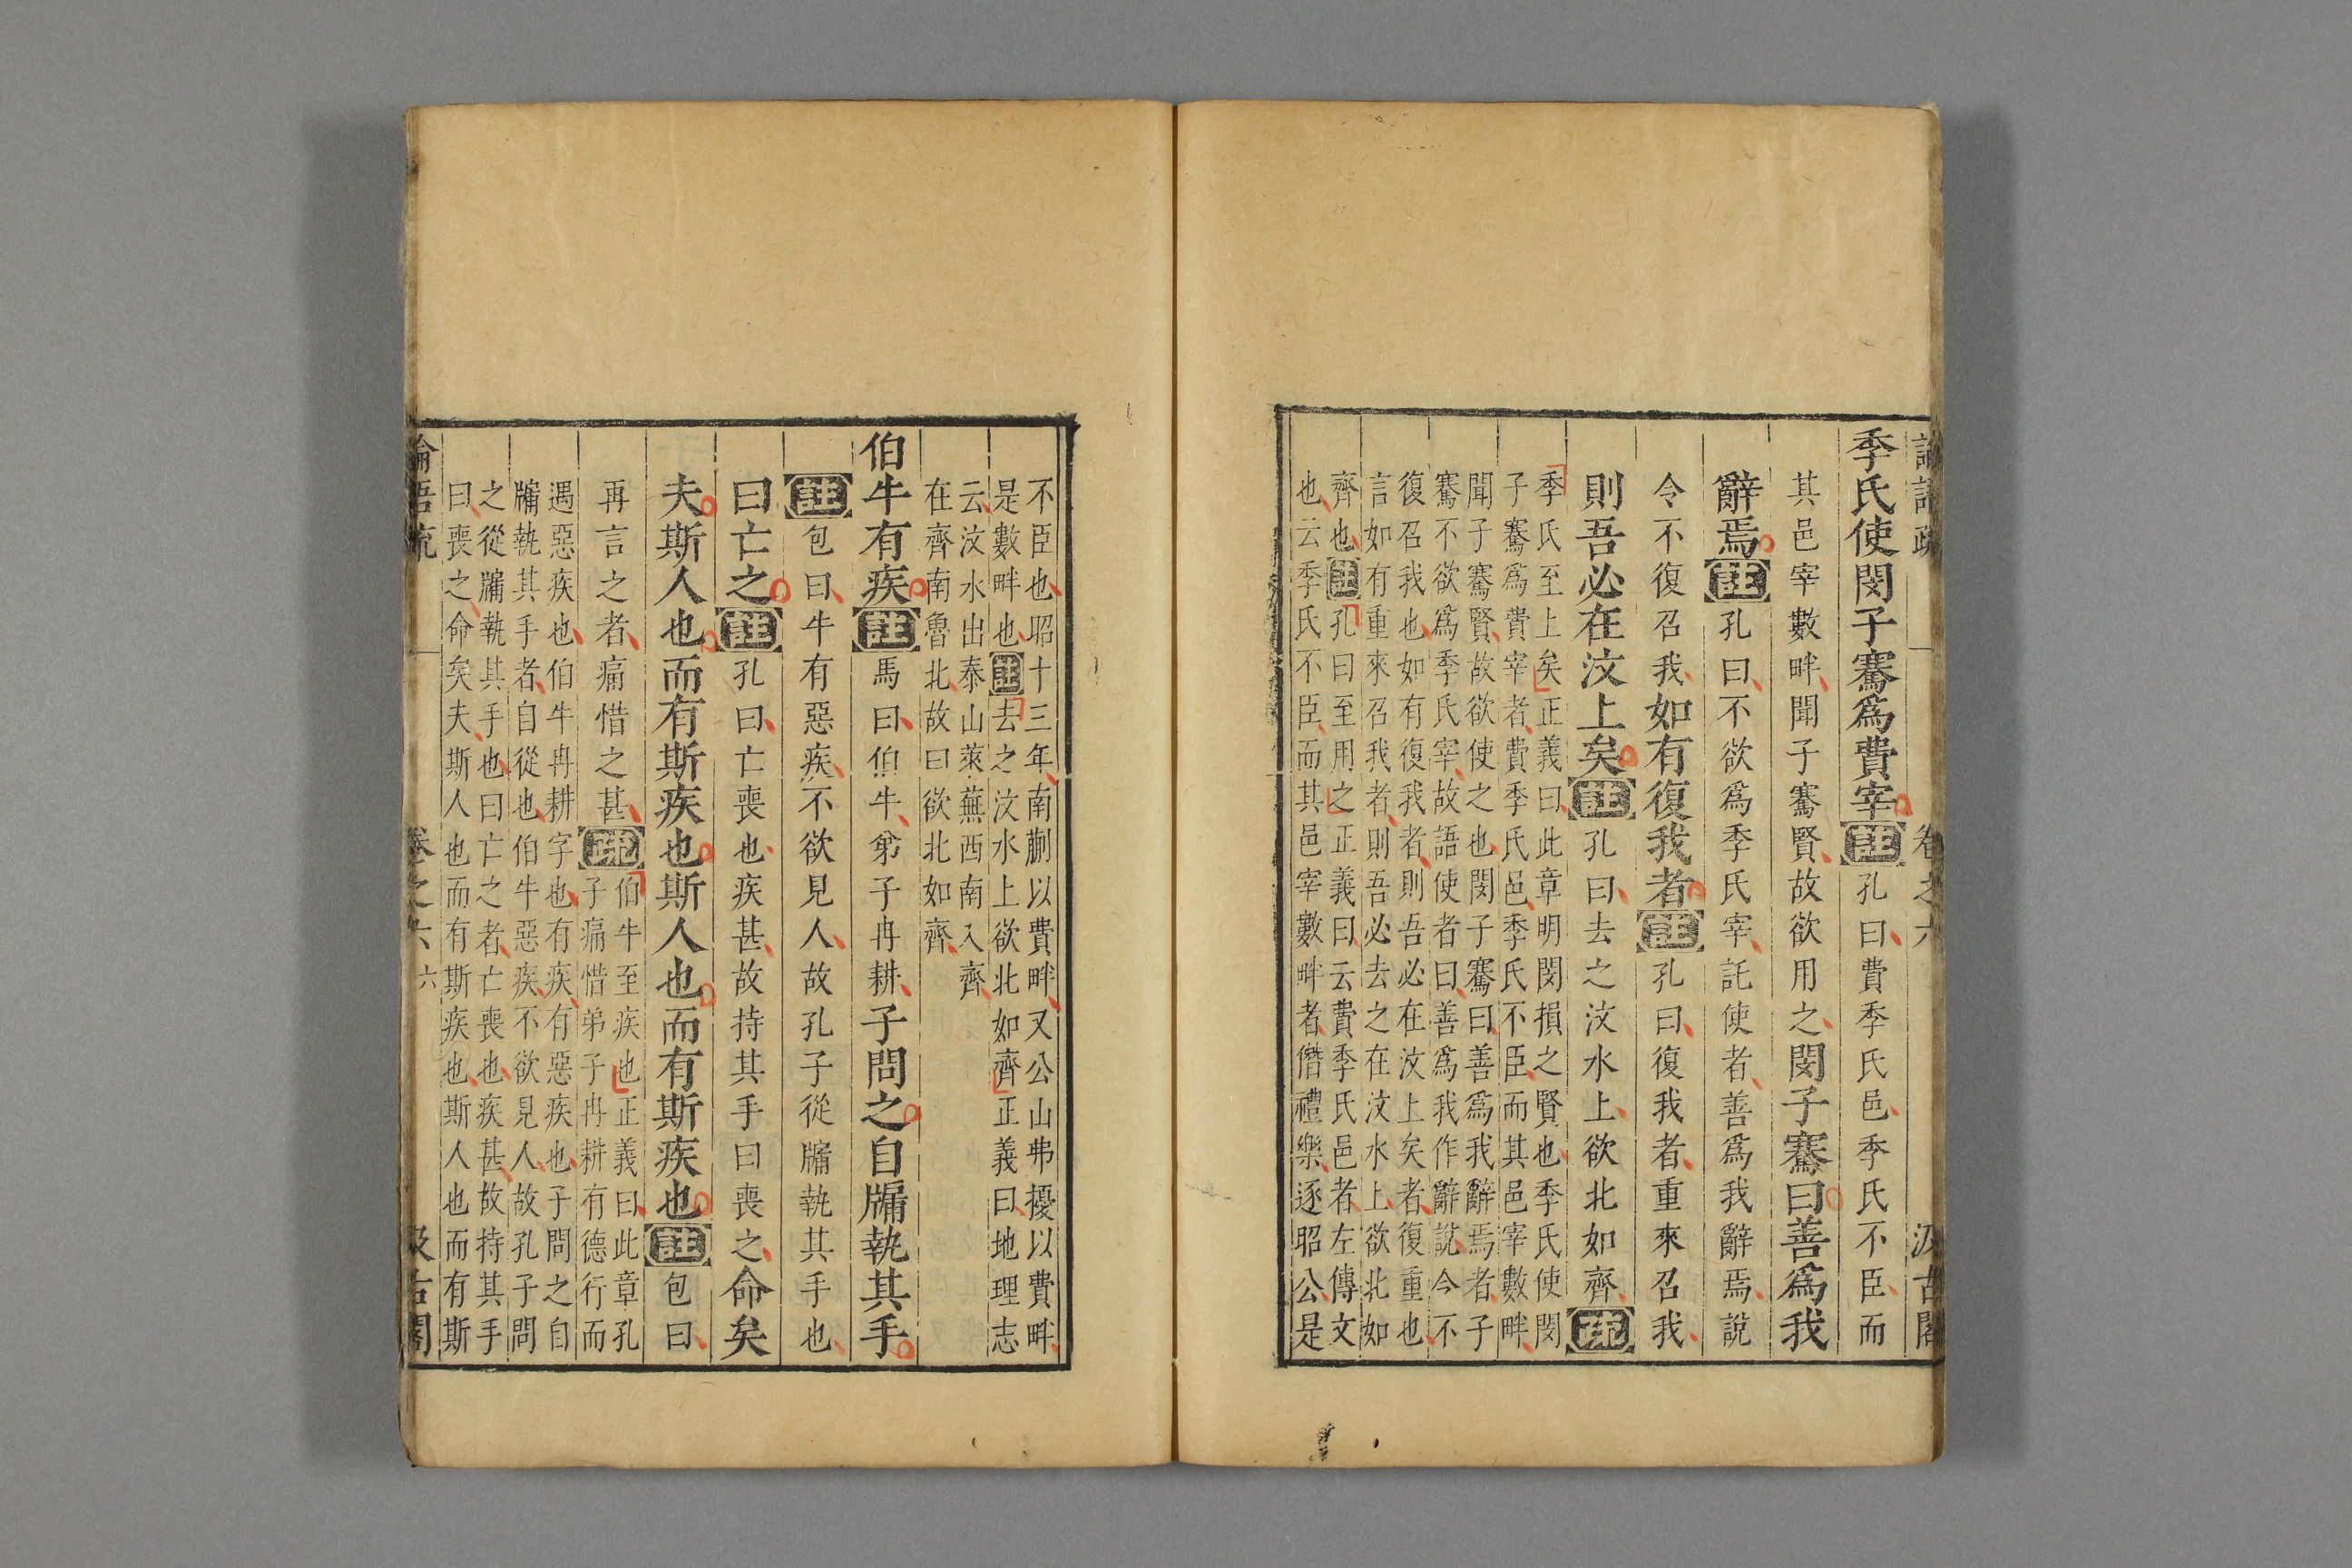 季氏使閔子騫爲費宰註孔曰費季氏邑季氏不臣而
其邑宰數畔聞子騫賢故欲用之閔子騫曰善爲我
辭焉註孔曰不欲爲季氏宰託使者善爲我辭焉說
令不復召我如有復我者註孔曰復我者重來召我
則吾必在汶上矣註孔曰去之汶水上欲北如齊疏
季氏至上矣正義曰此章明閔損之賢也季氏使閔
子騫爲費宰者費季氏邑季氏不臣而其邑宰數畔
聞子騫賢故欲使之也閔子騫曰善爲我辭焉者子
騫不欲爲季氏宰故語使者曰善爲我作辭說今不
復召我也如有復我者則吾必在汶上矣者復重也
言如有重來召我者則吾必去之在汶水上欲北如
齊也註孔曰至用之正義曰云費季氏邑者左傳文
也云季氏不臣而其邑宰數畔者僭禮樂逐昭公是
不臣也昭十三年南蒯以費畔又公山弗擾以費畔
是數畔也註去之汶水上欲北如齊正義曰地理志
云汶水出泰山萊蕪西南入齊
在齊南魯北故曰欲北如齊
伯牛有疾註馬曰伯牛弟子冉耕子問之自牖執其手
註包曰牛有惡疾不欲見人故孔子從牖執其手也
曰亡之註孔曰亡喪也疾甚故持其手曰喪之命矣
夫斯人也而有斯疾也斯人也而有斯疾也註包曰
再言之者痛惜之甚疏伯牛至疾也正義曰此章孔
子痛惜弟子冉耕有德行而
遇惡疾也伯牛冉耕字也有疾有惡疾也子問之自
牖執其手者自從也伯牛惡疾不欲見人故孔子問
之從牖執其手也曰亡之者亡喪也疾甚故持其手
曰喪之命矣夫斯人也而有斯疾也斯人也而有斯
論語疏 卷之六 六 汲古閣